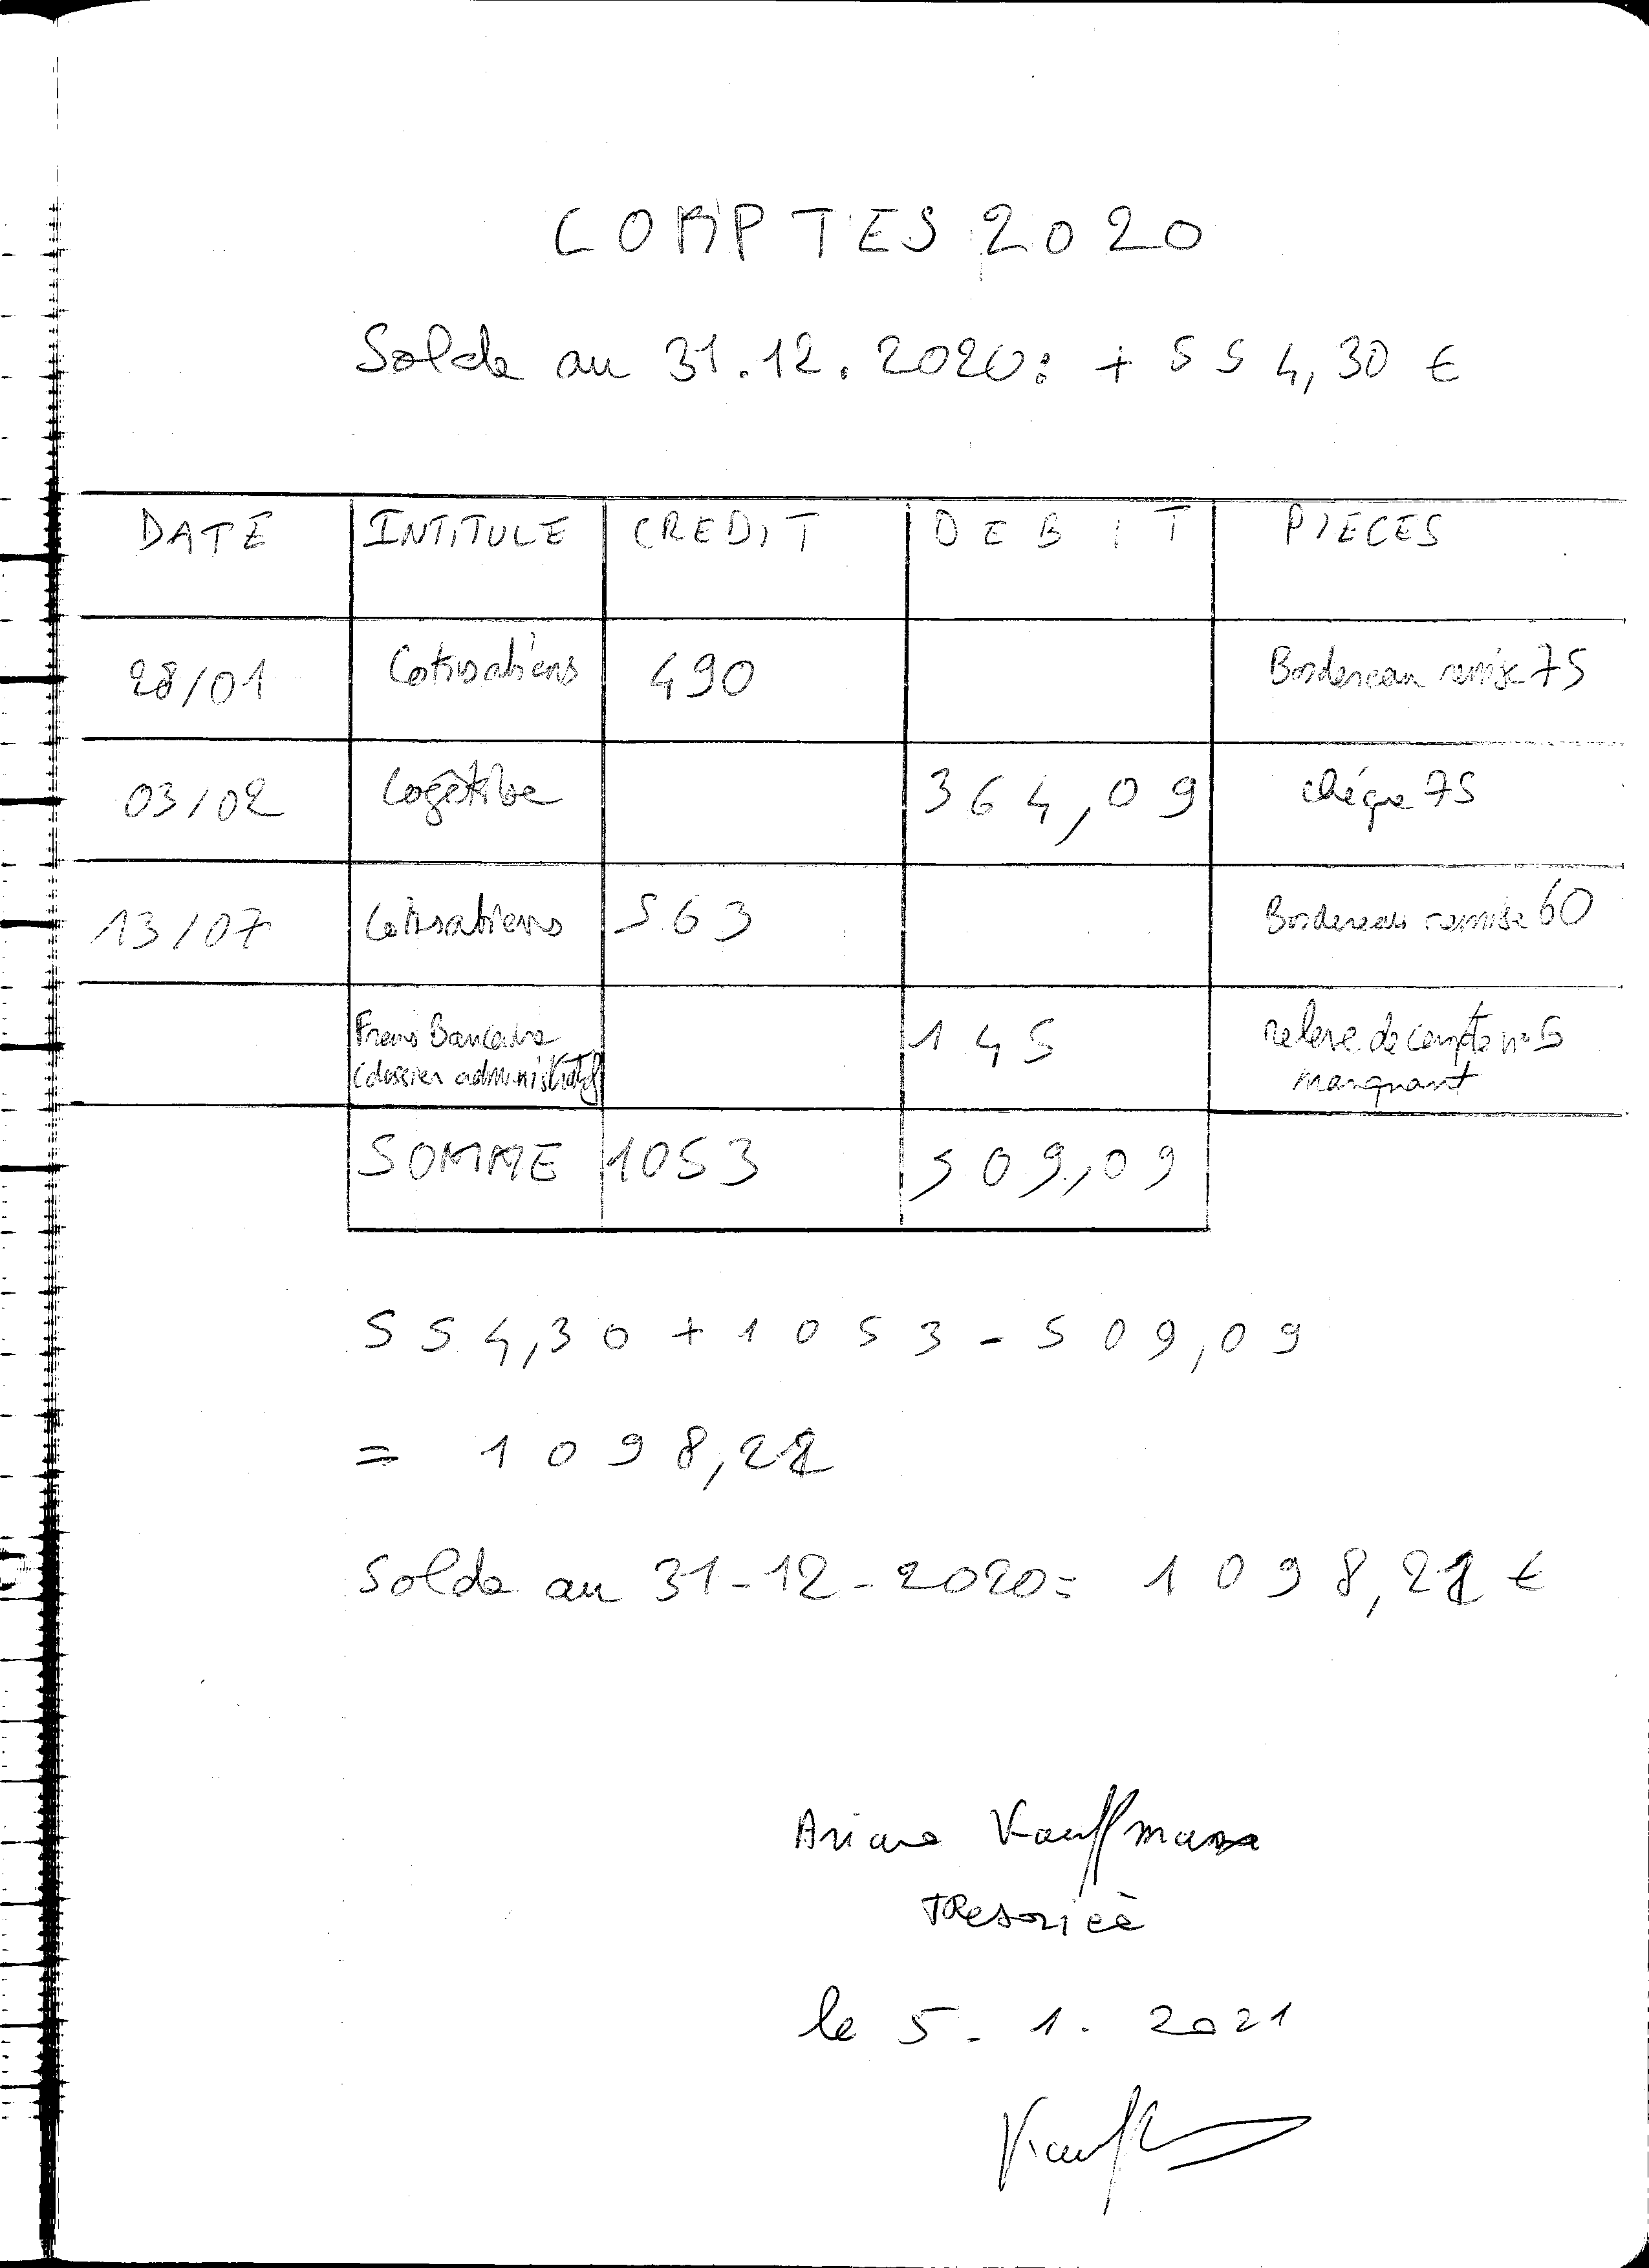 COMPTES 2020
Solde au 31.12.2020: + 554,30 €
DATE INTITULE CREDIT DEBIT PIECES
28/01 Cotisations 490 Bordereau remise 75
03/02 364,09 chéque 75
13/07 Cotisations 563 Bordereau remise 60
Frais Bancaire 145 releve de compte n°5
(dossier administratif) manquant
SOMME 1053 509,09
554,30 + 1053 - 509,09
= 1098,21
Solde au 31-12-2020= 1098,21 €
Ariane Kauffmann
le 5. 1. 2021